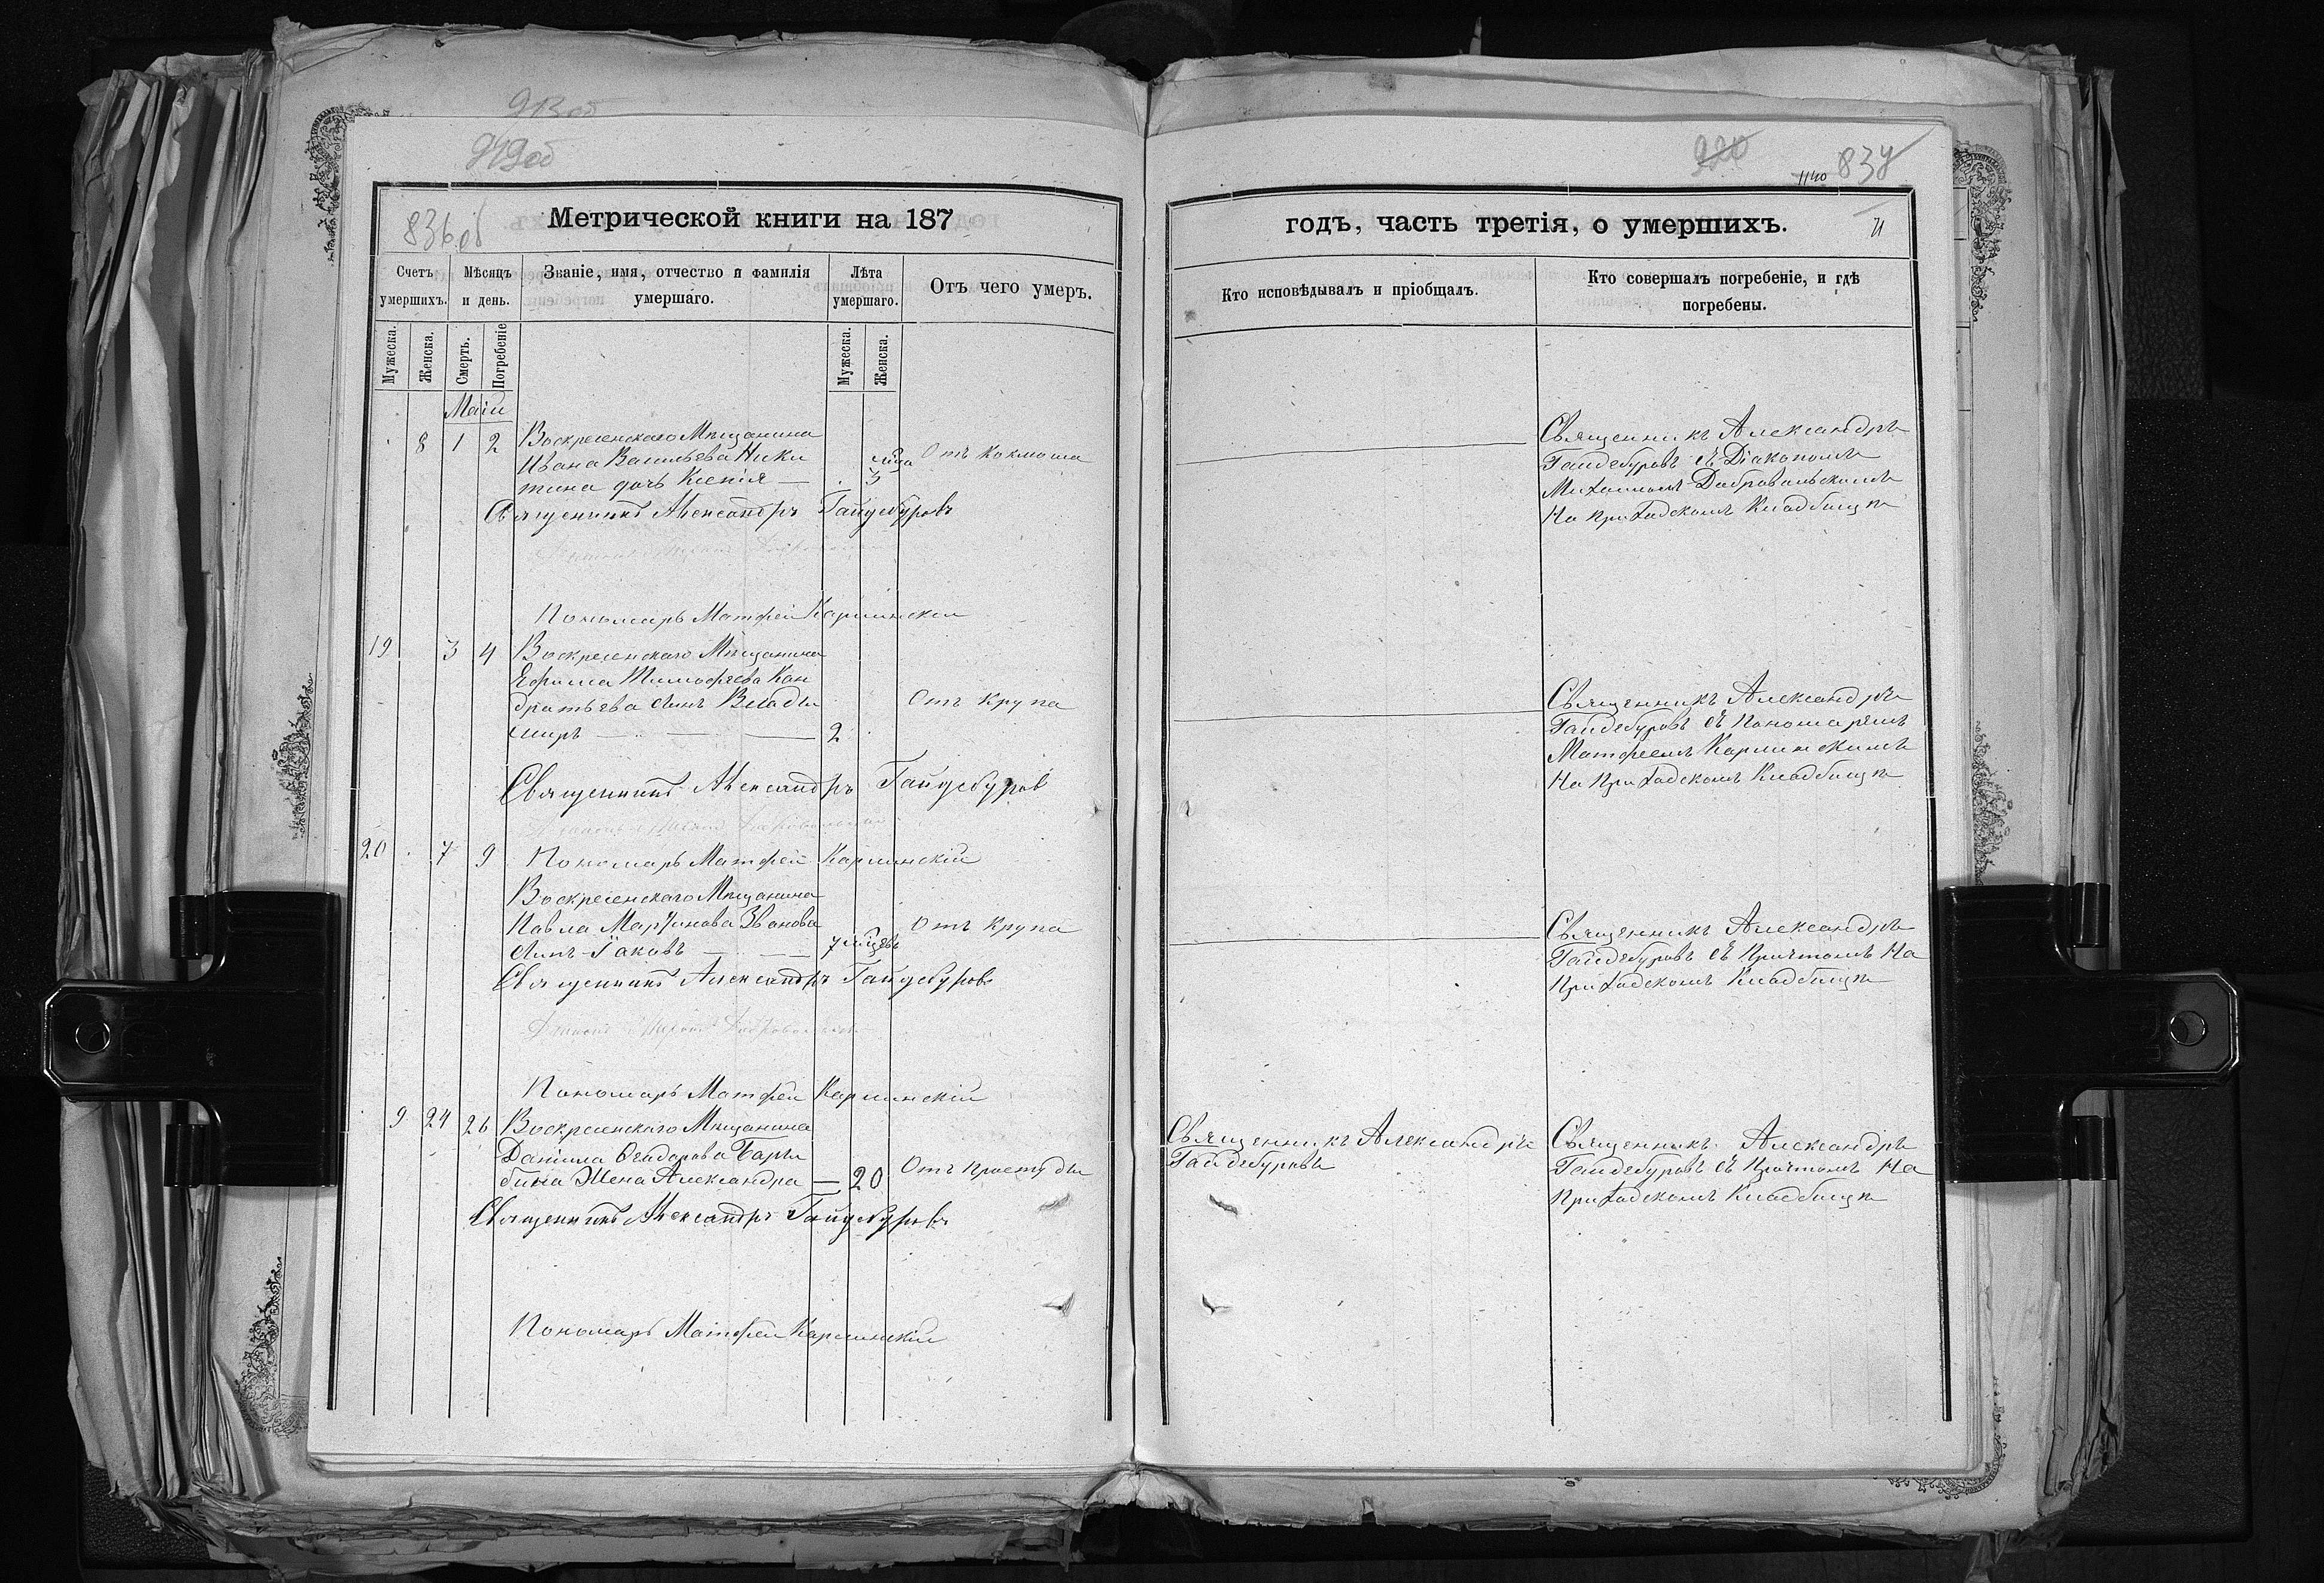 913об
949об
220
1140
837
836об
Метрической книги на 187
годъ, часть третія, о умершихъ.
Счетъ умершихъ.
Мѣсяцъ и день.
Званіе, имя, отчество и фамилія умершаго.
Лѣта умершаго.
Отъ чего умеръ.
Кто исповѣдывалъ и пріобщалъ.
Кто совершалъ погребеніе, и гдѣ погребены.
Мужеска.
Женска.
Смерть.
Погребеніе
Мужеска.
Женска.
Маій
8 1 2 Воскресенскаго Мѣщанина
Ивана Васильева Ники
тина дочь Ксенія — 3
Отъ Коклюша
Священникъ Александръ
Гайдебуровъ съ Діакономъ
Михаиломъ Добровольскимъ
На Приходскомъ Кладбищѣ
Священникъ Александръ Гайдебуровъ
Пономарь Матфей Карлинскій
19 3 4 Воскресенскаго Мѣщанина
Ефима Тимофеева Кон
дратьева сынъ Влади
миръ — 2
Отъ Крупа
Священникъ Александръ
Гайдебуровъ съ Пономаремъ
Матфеемъ Карлинскимъ
На Приходскомъ Кладбищѣ
Священникъ Александръ Гайдебуровъ
20 7 9 Пономарь Матфей Карлинскій
Воскресенскаго Мѣщанина
Павла Мартинова Званова
Сынъ Іаковъ — 7 мѣсяцевъ
Отъ Крупа
Священникъ Александръ
Гайдебуровъ съ Причтомъ На
Приходскомъ Кладбищѣ
Священникъ Александръ Гайдебуровъ
Пономарь Матфей Карлинскій
9 24 26 Воскресенскаго Мѣщанина
Даніила Ѳеодорова Бары
бина Жена Александра — 20
Отъ Простуды
Священникъ Александръ
Гайдебуровъ
Священникъ Александръ
Гайдебуровъ съ Причтомъ На
Приходскомъ Кладбищѣ
Священникъ Александръ Гайдебуровъ
Пономарь Матфей Карлинскій